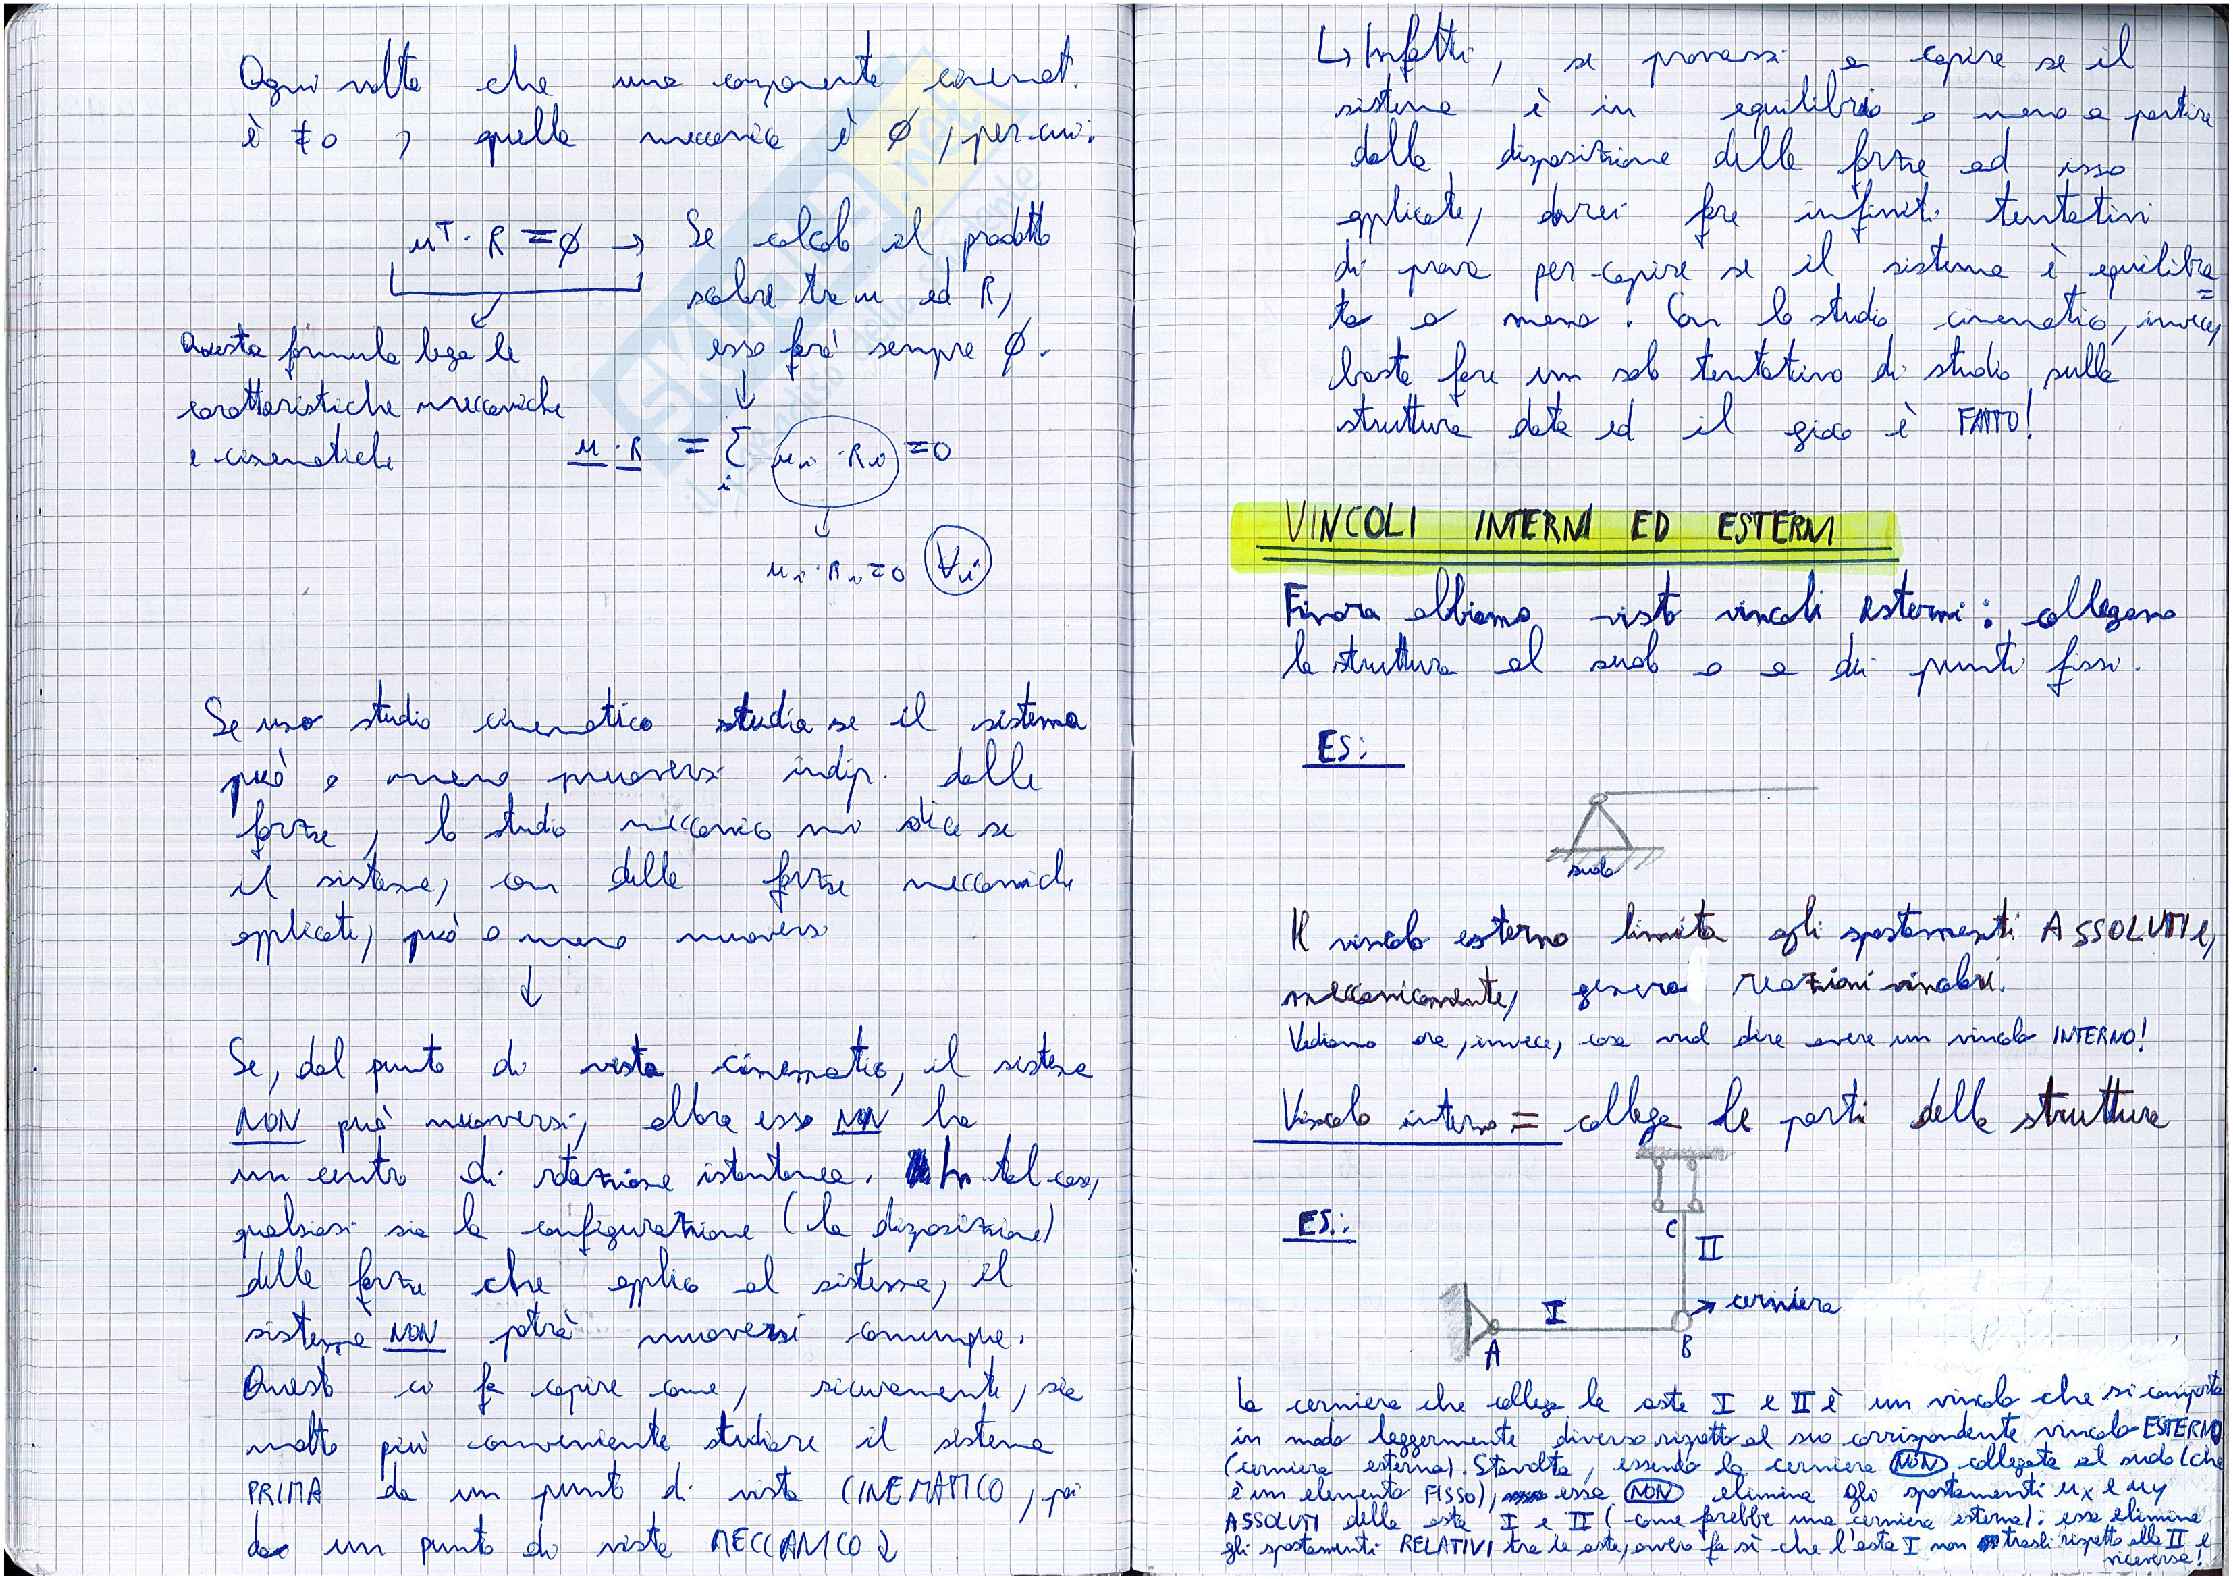 Ogni volta che una componente cinemat.
è ≠ 0 , quella meccanica è ∅, per cui:
uᵀ · R = ∅ → Se calcolo il prodotto
scalare tra u ed R,
esso farà sempre ∅.
Questa formula lega le
caratteristiche meccaniche
e cinematiche
u · R = Σ i ui · Ri = 0
ui · Ri = 0 ∀i
Se uso studio cinematico studio se il sistema
può o meno muoversi indip. dalle
forze, lo studio meccanico mi dice se
il sistema, con delle forze meccaniche
applicate, può o meno muoversi
↓
Se, dal punto di vista cinematico, il sistema
NON può muoversi, allora esso NON ha
un centro di rotazione istantanea. In tal caso,
qualsiasi sia la configurazione (la disposizione)
delle forze che applico al sistema, il
sistema NON potrà muoversi comunque.
Questo ci fa capire come, sicuramente, sia
molto più conveniente studiare il sistema
PRIMA da un punto di vista CINEMATICO, poi
da un punto di vista MECCANICO
↳ Infatti, se provassi a capire se il
sistema è in equilibrio o meno a partire
dalla disposizione delle forze ad esso
applicate, dovrei fare infiniti tentativi
di prova per capire se il sistema è equilibra=
to o meno. Con lo studio cinematico, invece,
basta fare un solo tentativo di studio sulla
struttura data ed il gioco è FATTO!
VINCOLI INTERNI ED ESTERNI
Finora abbiamo visto vincoli esterni: collegano
la struttura al suolo o a dei punti fissi.
ES:
suolo
Il vincolo esterno limita gli spostamenti ASSOLUTI e,
meccanicamente, genera reazioni vincolari.
Vediamo ora, invece, cosa vuol dire avere un vincolo INTERNO!
Vincolo interno = collega le parti della struttura
ES.:
C
II
I
→ cerniera
A
B
La cerniera che collega le aste I e II è un vincolo che si comporta
in modo leggermente diverso rispetto al suo corrispondente vincolo ESTERNO
(cerniera esterna). Stavolta, essendo la cerniera NON collegata al suolo (che
è un elemento FISSO), essa NON elimina gli spostamenti ux e uy
ASSOLUTI delle aste I e II (come farebbe una cerniera esterna): essa elimina
gli spostamenti RELATIVI tra le aste, ovvero fa sì che l'asta I non trasli rispetto alla II e
viceversa!